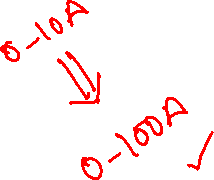 0-10A
0-100A